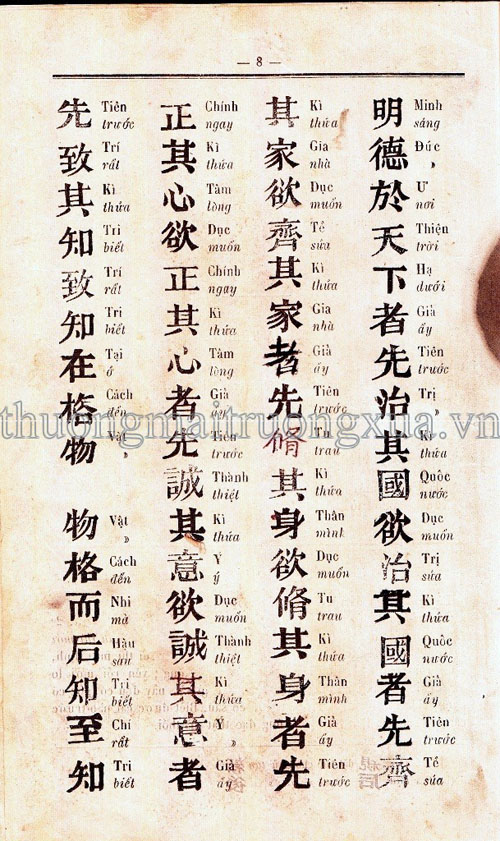 — 8 —
明 Minh sáng
德 Đúc »
於 Ư nơi
天 Thiện trời
下 Hạ dưới
者 Giả ấy
先 Tiên trước
治 Trị »
其 Kì thửa
國 Quốc nước
欲 Dục muốn
治 Trị sửa
其 Kì thửa
國 Quốc nước
者 Giả ấy
先 Tiên trước
齊 Tề sửa
其 Kì thửa
家 Gia nhà
欲 Dục muốn
齊 Tề sửa
其 Kì thửa
家 Gia nhà
者 Giả ấy
先 Tiên trước
脩 Tu trau
其 Kì thửa
身 Thân mình
欲 Dục muốn
脩 Tu trau
其 Kì thửa
身 Thân mình
者 Giả ấy
先 Tiên trước
正 Chính ngay
其 Kì thửa
心 Tâm lòng
欲 Dục muốn
正 Chính ngay
其 Kì thửa
心 Tâm lòng
者 Giả ấy
先 Tiên trước
誠 Thành thiệt
其 Kì thửa
意 Ý ý
欲 Dục muốn
誠 Thành thiệt
其 Kì thửa
意 Ý »
者 Giả ấy
先 Tiên trước
致 Trí rất
其 Kì thửa
知 Tri biết
致 Trí rất
知 Tri biết
在 Tại ở
格 Cách đến
物 Vật »
物 Vật »
格 Cách đến
而 Nhi mà
后 Hậu sau
知 Tri biết
至 Chí rất
知 Tri biết
thuongmaitruongxua.vn